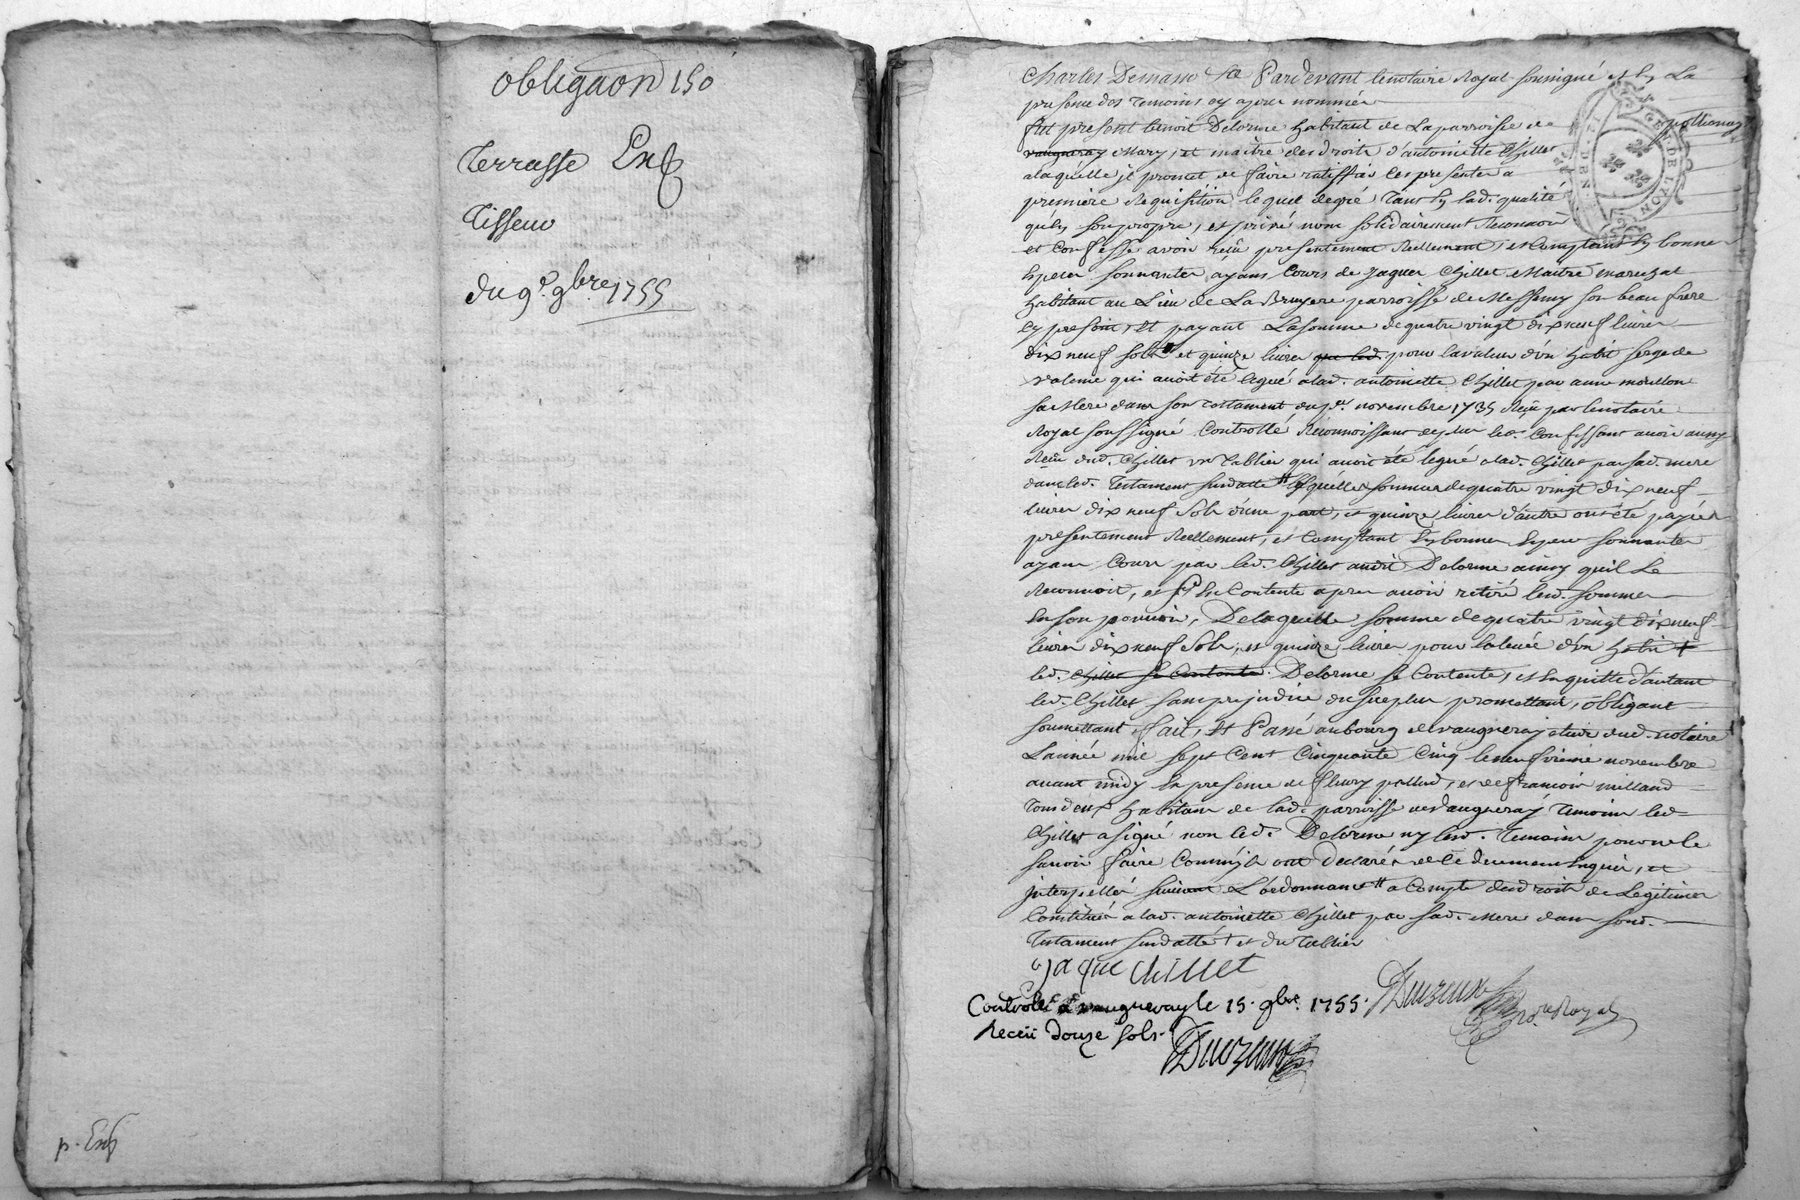 obligaon 150
Terrasse Exp
Tisseur
du 9e. 9bre 1755
p. Exp
Pardevant le notaire Royal soussigné et en La
presence des Temoins cy apres nommés
fut present benoit Delorme habitant de La parroisse de pollionay
vaugneray Mary, et maitre des droits d'antoinette Chillet
a laquelle jl promet de faire ratiffier les presentes a
premiere Requisition lequel degré, Tant En lad. qualité
qu'en son propre, et privé nom solidairement Reconnoit
et Confesse avoir reçû presentement Reellement, et Comptant En bonnes
Especes sonnantes ayans Cours de jaques Chillet Maitre marechal
habitant au Lieu de La Bruyere parroisse de Messemy son beau frere
cy present, Et payant La somme de quatre vingt dix neuf livres
dix neuf sols et quinze livres que led. pour la valeur d'un habit serge de
valence qui avoit été legué a lad. antoinette Chillet par anne moullon
sa Mere dans son testament du per. novembre 1735 Reçu par le notaire
Royal soussigné Controllé Reconnoissant de plus led. Confessant avoir aussy
Reçu dud. Chillet un Tablier qui avoit été legué a lad. Chillet par sad. mere
dans led. Testament susdatte # lesquelles sommes de quatre vingt dix neuf
livres dix neuf sols d'une part, et quinze livres d'autre ont été payées
presentement Reellement, et Comptant En bonnes Especes sonnantes
ayans Cours par led. Chillet audit Delorme ainsy qu'il Le
Reconnoit, et s'En Contente apres avoir retiré lesd. sommes
En son pouvoir, De laquelle somme de quatre vingt dix neuf
livres dix neuf Sols, et quinze livres pour la levée d'un habit +
led. Chillet se Contente. Delorme se Contente, et En quitte d'autant
led. Chillet sans prejudice du surplus promettant, obligant
soumettant, fait, Et Passé au bourg de vaugneray etude dud. notaire
L'année mil sept Cent Cinquante Cinq le neufvieme novembre
avant midy En presence de fleury pallud, et de francois milland
Tous deux habitans de lad. parroisse de vaugneray Temoins led.
Chillet a signé non led. Delorme ny lesd. Temoins pour ne le
savoir faire Comme jls ont Declarés de Ce duement Enquis, et
jnterpellés suivant L'ordonnance # a Compte des droits de Legitimes
Constitués a lad. antoinette Chillet par sad. Mere dans sond.
Testament susdatté + et du Tablier
jaque chillet
Controllé a vaugneray le 15. 9bre. 1755.
Receü Douze sols.